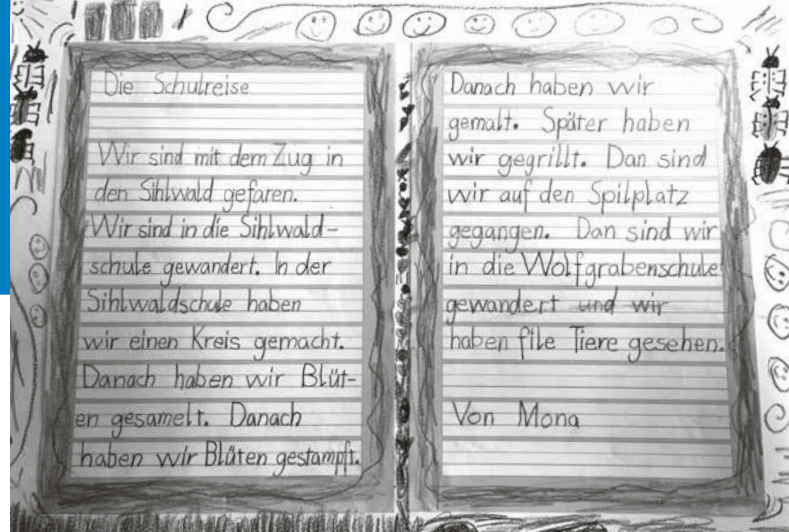 Die Schulreise
Wir sind mit dem Zug in
den Sihlwald gefaren.
Wir sind in die Sihlwald-
schule gewandert. In der
Sihlwaldschule haben
wir einen Kreis gemacht.
Danach haben wir Blüt-
en gesamelt. Danach
haben wir Blüten gestampft.
Danach haben wir
gemalt. Später haben
wir gegrillt. Dan sind
wir auf den Spilplatz
gegangen. Dan sind wir
in die Wolfgrabenschule
gewandert und wir
haben file Tiere gesehen.
Von Mona